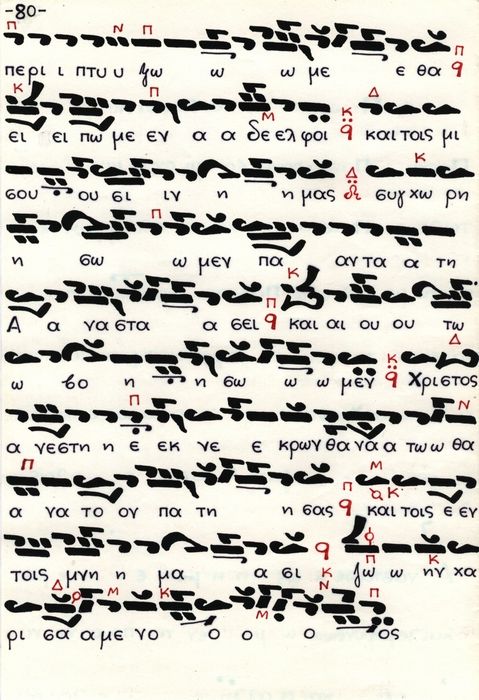 -80-
περι ι πτυ υ ξω ω ω με ε θα
ει ει πω με εν α α δε ελ φοι και τοις μι
σου ου σι ιν η η μας συγ χω ρη
η σω ω μεν πα αν τα α τη
Α α να στα α σει και αι ου ου τω
ω βο η η σω ω ω μεν Χριστος
α νεστη ε εκ νε ε κρων θα να α τω ω θα
α να το ον πα τη η σας και τοις ε εν
τοις μνη η μα α σι ζω ω ην χα
ρι σα α με νο ο ο ο ος